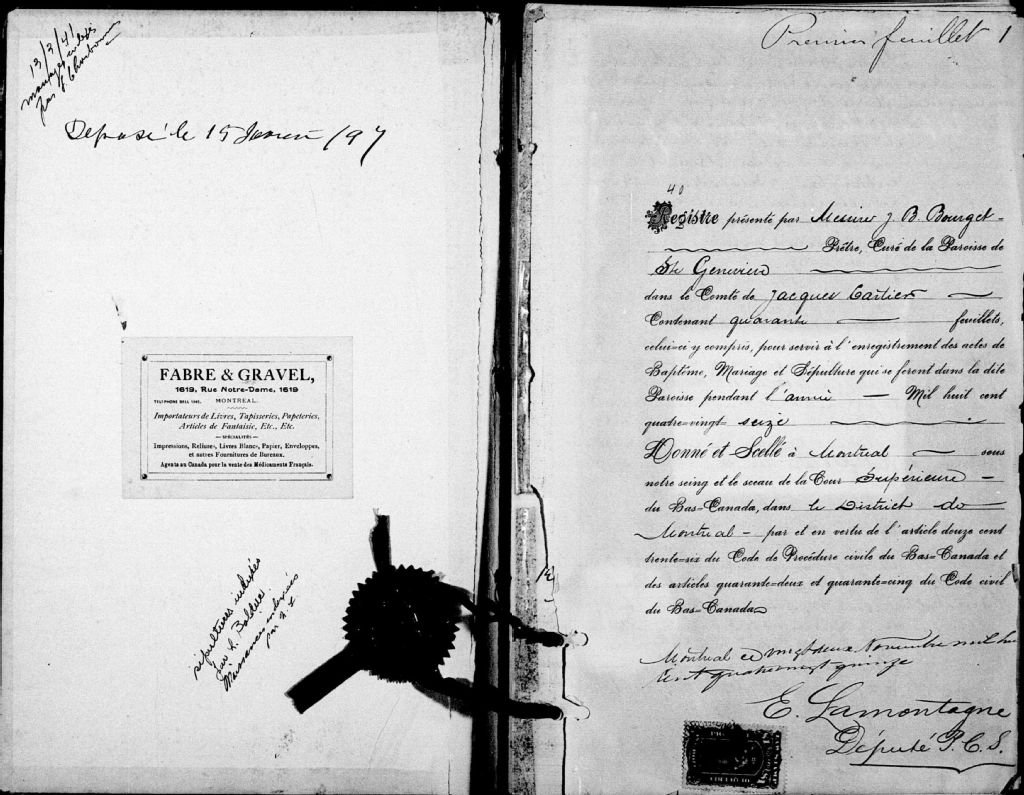 13/3/41
mariages indexés
par
Déposé le 15 Janvier /97
FABRE & GRAVEL,
1619, Rue Notre-Dame, 1619
TELEPHONE BELL MONTREAL.
Importateurs de Livres, Tapisseries, Papeteries,
Articles de Fantaisie, Etc., Etc.
—SPÉCIALITÉS—
Impressions, Reliures, Livres Blancs, Papier, Enveloppes,
et autres Fournitures de Bureaux.
Agents au Canada pour la vente des Médicaments Français.
sépultures indexées
par L. Bolduc
Naissances indexées
par
Premier feuillet 1
40
Registre présenté par Messire J. B. Bourget
Prêtre, Curé de la Paroisse de
Ste Geneviève
dans le Comté de Jacques Cartier
Contenant quarante feuillets,
celui=ci y compris, pour servir à l'enregistrement des actes de
Baptême, Mariage et Sépulture qui se feront dans la dite
Paroisse pendant l'année — Mil huit cent
quatre=vingt= seize
Donné et Scellé à Montreal — sous
notre seing et le sceau de la Cour Supérieure —
du Bas=Canada, dans le District de
Montreal — par et en vertu de l'article douze cent
trente=six du Code de Procédure civile du Bas=Canada et
des articles quarante=deux et quarante=cinq du Code civil
du Bas=Canada
Montreal ce vingt deux Novembre mil huit
cent quatrevingt quinze
E. Lamontagne
Député P. C. S.